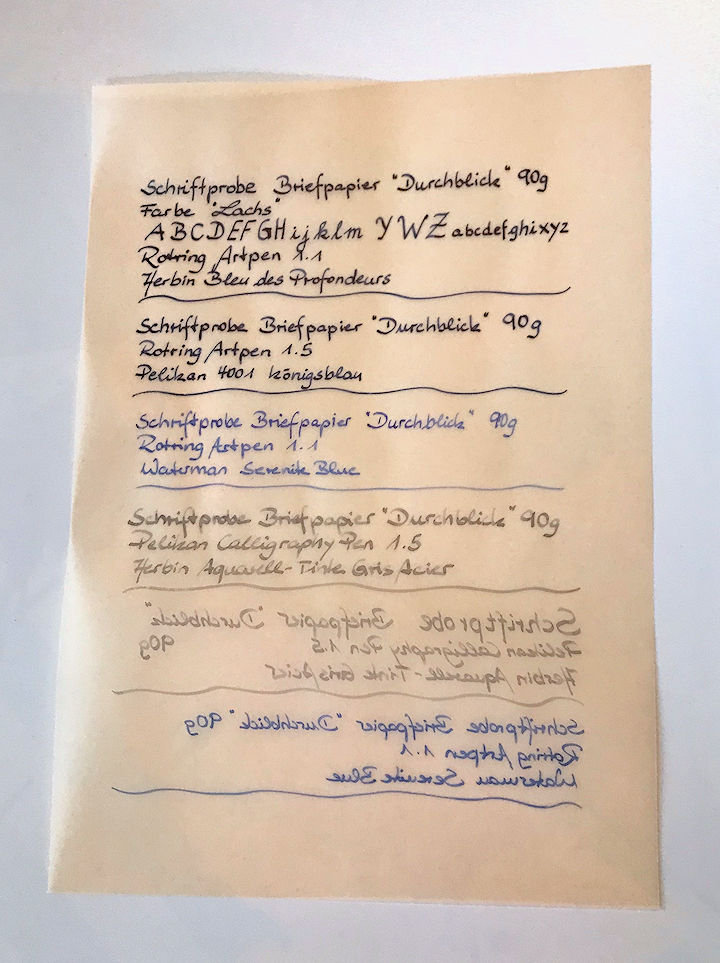 Schriftprobe Briefpapier "Durchblick" 90g
Farbe "Lachs"
ABCDEFGHijklm YWZ abcdefghixyz
Rotring Artpen 1.1
Herbin Bleu des Profondeurs
Schriftprobe Briefpapier "Durchblick" 90g
Rotring Artpen 1.5
Pelikan 4001 königsblau
Schriftprobe Briefpapier "Durchblick" 90g
Rotring Artpen 1.1
Waterman Serenite Blue
Schriftprobe Briefpapier "Durchblick" 90g
Pelikan Calligraphy Pen 1.5
Herbin Aquarell-Tinte Gris Acier
Schriftprobe Briefpapier "Durchblick"
Pelikan Calligraphy Pen 1.5 90g
Herbin Aquarell-Tinte Gris Acier
Schriftprobe Briefpapier "Durchblick" 90g
Rotring Artpen 1.1
Waterman Serenite Blue